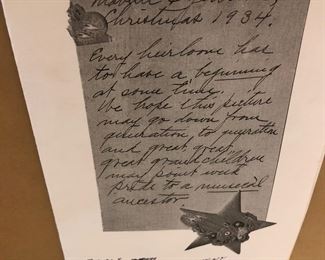 Christmas 1934.
Every heirloom has
to have a beginning
at some time.
We hope this picture
may go down from
generation to generation
and great, great,
great grandchildren
may point with
pride to a musical
ancestor